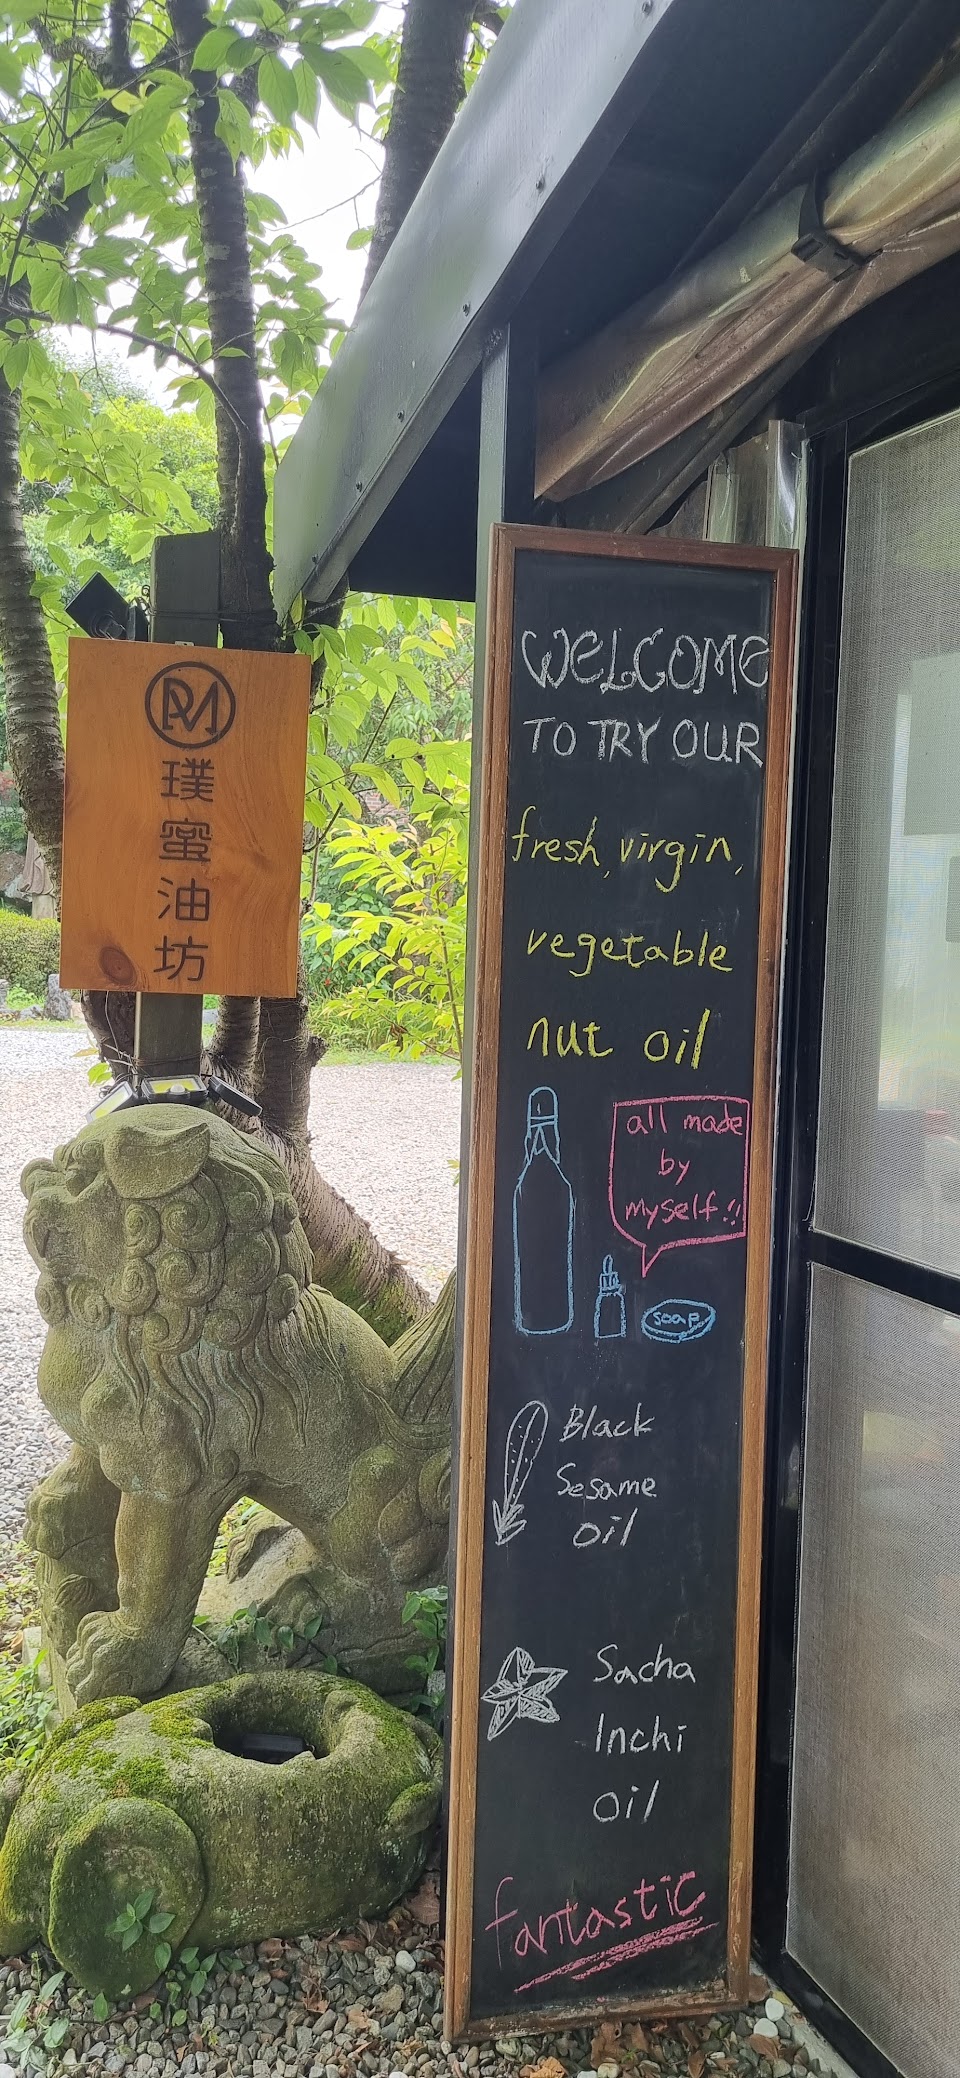 璞蜜油坊
WELCOME
TO TRY OUR
fresh, virgin,
vegetable
nut oil
all made
by
myself!!
soap
Black
Sesame
oil
Sacha
Inchi
oil
fantastic